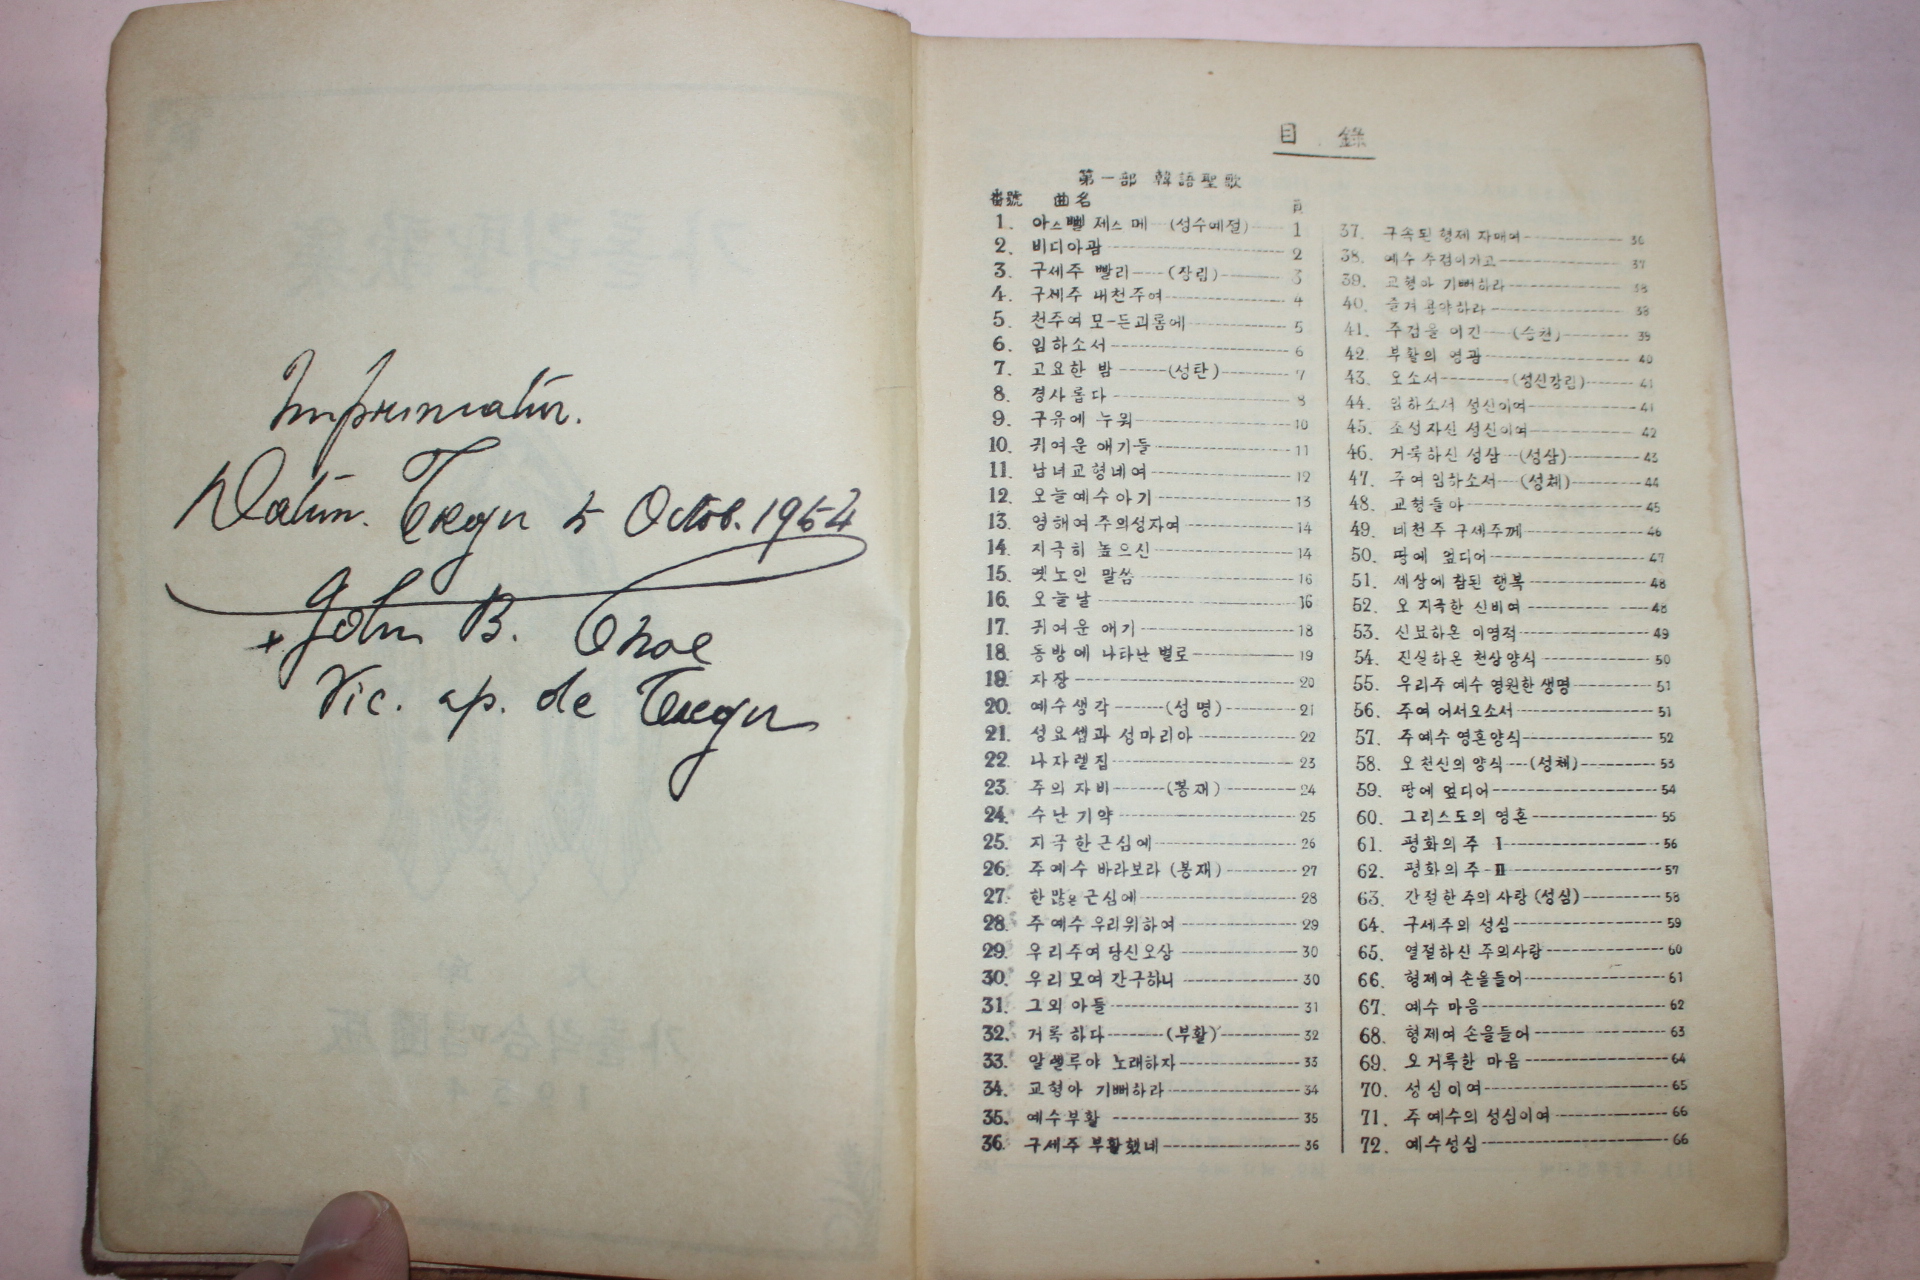 Imprimatur.
Datum. Taegu 5 Octob. 1954
+ John B. Choe
Vic. ap. de Taegu
目 錄
第一部 韓語聖歌
番號 曲名 頁
1. 아스뻴제스 메 (성수예절) 1
2. 비디아꽘 2
3. 구세주 빨리 (장림) 3
4. 구세주 내천주여 4
5. 천주여 모-든괴롬에 5
6. 임하소서 6
7. 고요한 밤 (성탄) 7
8. 경사롭다 8
9. 구유에 누워 10
10. 귀여운 애기들 11
11. 남녀교형네여 12
12. 오늘예수아기 13
13. 영해여 주의성자여 14
14. 지극히 높으신 14
15. 옛노인 말씀 16
16. 오늘날 16
17. 귀여운 애기 18
18. 동방에 나타난 별로 19
19. 자장 20
20. 예수생각 (성명) 21
21. 성요셉과 성마리아 22
22. 나자렛집 23
23. 주의 자비 (봉재) 24
24. 수난기약 25
25. 지극한근심에 26
26. 주예수 바라보라 (봉재) 27
27. 한많은 근심에 28
28. 주예수 우리위하여 29
29. 우리주여 당신오상 30
30. 우리모여 간구하니 30
31. 그외아들 31
32. 거룩하다 (부활) 32
33. 알렐루야 노래하자 33
34. 교형아 기뻐하라 34
35. 예수부활 35
36. 구세주 부활했네 36
37. 구속된 형제 자매여 36
38. 예수 주검이기고 37
39. 교형아 기뻐하라 38
40. 즐겨 용약하라 38
41. 주검을 이긴 (승천) 39
42. 부활의 영광 40
43. 오소서 (성신강림) 41
44. 임하소서 성신이여 41
45. 소성자신 성신이여 42
46. 거룩하신 성삼 (성삼) 43
47. 주여임하소서 (성체) 44
48. 교형들아 45
49. 네천주 구세주께 46
50. 땅에 엎디어 47
51. 세상에 참된 행복 48
52. 오 지극한 신비여 48
53. 신묘하온 이영적 49
54. 진실하온 천상양식 50
55. 우리주 예수 영원한 생명 51
56. 주여 어서오소서 51
57. 주예수 영혼양식 52
58. 오천신의 양식 (성체) 53
59. 땅에 엎디어 54
60. 그리스도의 영혼 55
61. 평화의주 I 56
62. 평화의주-II 57
63. 간절한주의 사랑 (성심) 58
64. 구세주의 성심 59
65. 열절하신 주의사랑 60
66. 형제여 손을들어 61
67. 예수 마음 62
68. 형제여 손을들어 63
69. 오 거룩한 마음 64
70. 성심이여 65
71. 주예수의 성심이여 66
72. 예수성심 66